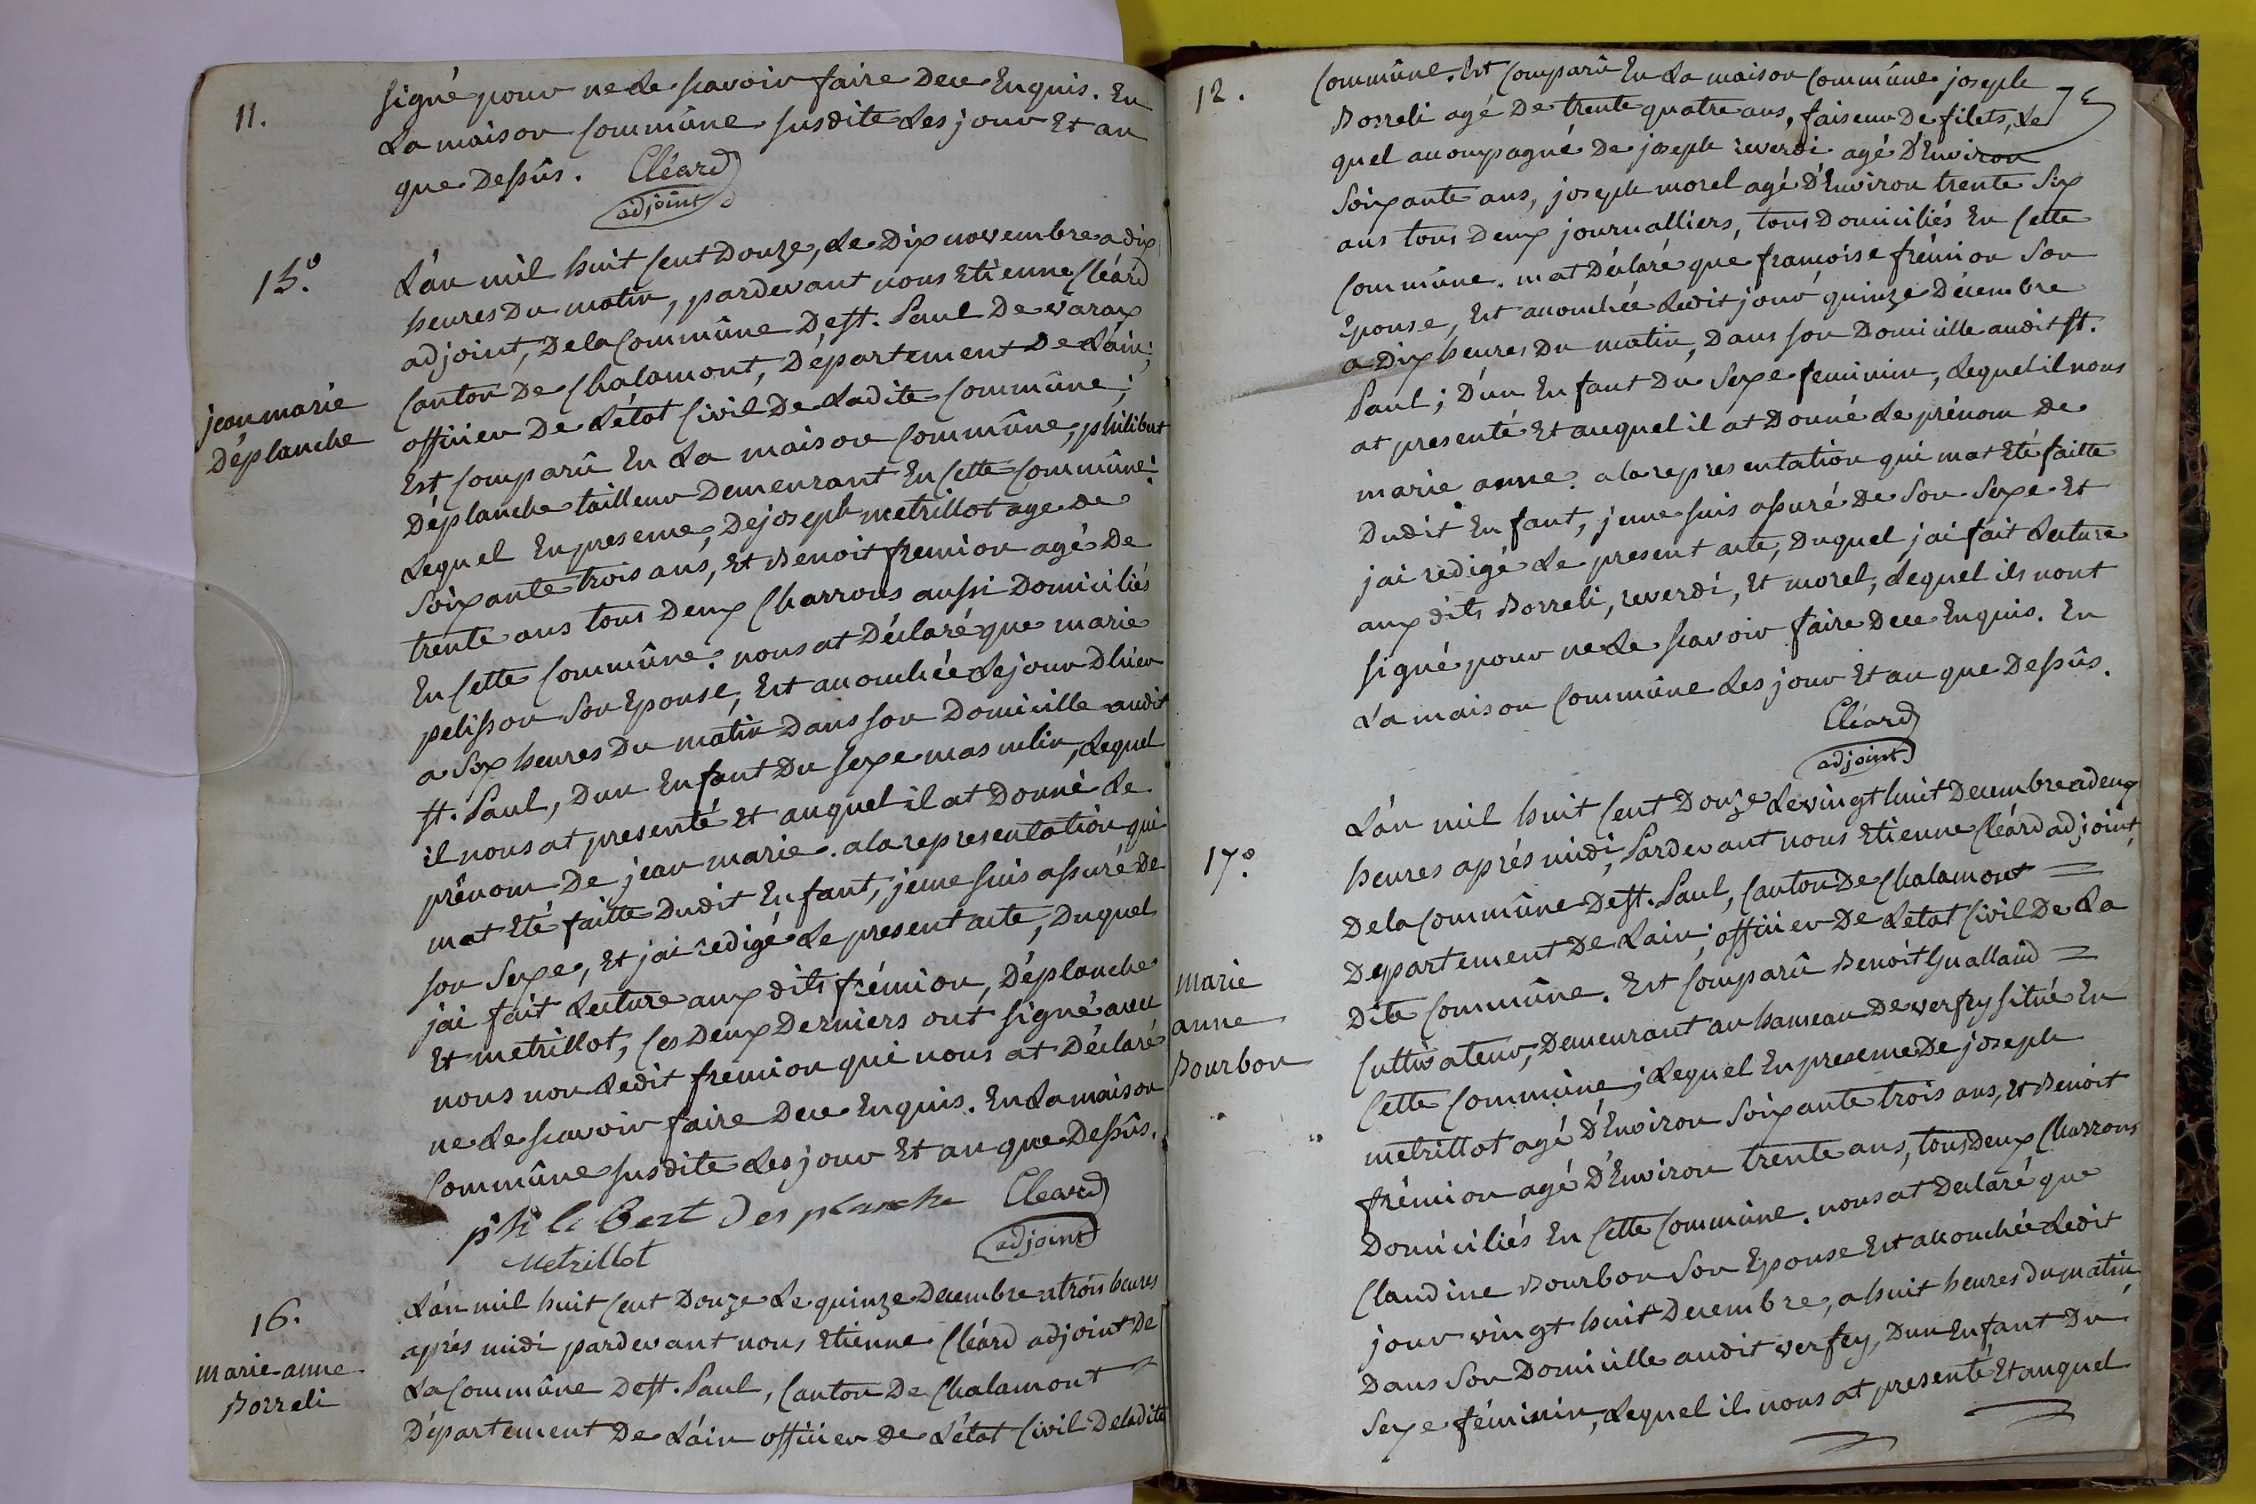 11.
signé pour ne le scavoir faire Dece Enquis. En
La maison Commûne susdite Les jour Et an
que Dessûs. Cléard
adjoint
15.º
L'an mil huit Cent Douze, Le Dix novembre a dix
heures Du matin, pardevant nous Etienne Cléard
adjoint, De la Commûne De st. Paul De varax
Canton De Chalamont, Département De L'ain;
jean marie
Déplanche
officier De L'étot Civil De Ladite Commûne;
Est Comparû En La maison Commûne, philibert
Déplanche tailleur Demeurant En Cette Commûne;
Lequel En presence, De joseph metrillot age de
Soixante trois ans, Et Benoit fremion agé De
trente ans tous Deux Charrons aussi Domiciliés
En Cette Commûne. nous at Déclaré que marie
pelisson Son Epouse, Est accouchée Le jour D'hier
a Six heures Du matin Dans son Domicille audit
st. Paul, D'un Enfant Du sexe masculin, Lequel
il nous at presenté Et auquel il at Donné Le
prénom De jean marie. a la representation qui
mat Eté faitte Dudit Enfant, je me suis assuré De
son Sexe, Et j'ai rédigé Le present acte, Duquel
j'ai fait Lecture aux dits frémion, Déplanche
Et metrillot, Ces Deux Derniers ont signé avec
nous non Ledit fremion qui nous at Déclaré
ne Le scavoir faire Dece Enquis. En La maison
Commûne susdite Les jour Et an que Dessûs.
philibert Desplanche Cleard
Metrillot adjoint
16.
marie-anne
Borreli
L'an mil huit Cent Douze Le quinze Decembre a trois heures
aprés midi pardevant nous Etienne Cléard adjoint De
La Commûne De st. Paul, Canton De Chalamont
Département De L'ain officier De L'état Civil De ladite
12.
Commûne. Est Comparû En La maison Commûne joseph
Borreli agé De trente quatre ans, faiseur De filets, Le
quel accompagné De joseph reverdi agé D'Environ
Soixante ans, joseph morel agé D'Environ trente Six
ans tous Deux journalliers, tous Domiciliés En Cette
Commûne. mat Déclaré que francoise frémion Son
Epouse, Est accouchée Ledit jour quinze Décembre
a Dix heures Du matin, Dans son Domicille audit st.
Paul; D'un Enfant Du Sexe feminin, Lequel il nous
at presenté Et auquel il at Donné Le prénom De
marie anne. a la representation qui mat Eté faitte
Dudit Enfant, je me suis assuré De Son Sexe Et
j'ai rédigé Le present acte, Duquel j'ai fait Lecture
aux dits Borreli, reverdi, Et morel, Lequel ils n'ont
signé pour ne Le scavoir faire Dece Enquis. En
La maison Commûne Les jour Et an que Dessûs.
Cléard
adjoint
17.º
L'an mil huit Cent Douze Le vingt huit Decembre a deux
heures aprés midi, Pardevant nous Etienne Cléard adjoint,
De la Commûne De st. Paul, Canton De Chalamont
Departement De L'ain, officier De L'etat Civil De La
marie
anne
Bourbon
Dite Commûne. Est Comparû Benoit Gualland
Cultivateur, Demeurant au hameau De verfey situé En
Cette Commûne, Lequel En presence De joseph
metrillot agé D'Environ Soixante trois ans, Et Benoit
frémion agé D'Environ trente ans, tous Deux Charrons
Domiciliés En Cette Commune. nous at Declaré que
Claudine Bourbon Son Epouse Est accouchée Ledit
jour vingt huit Decembre, a huit heures Du matin
Dans Son Domicille audit verfey, D'un Enfant Du
Sexe féminin, Lequel il nous at presenté Et auquel